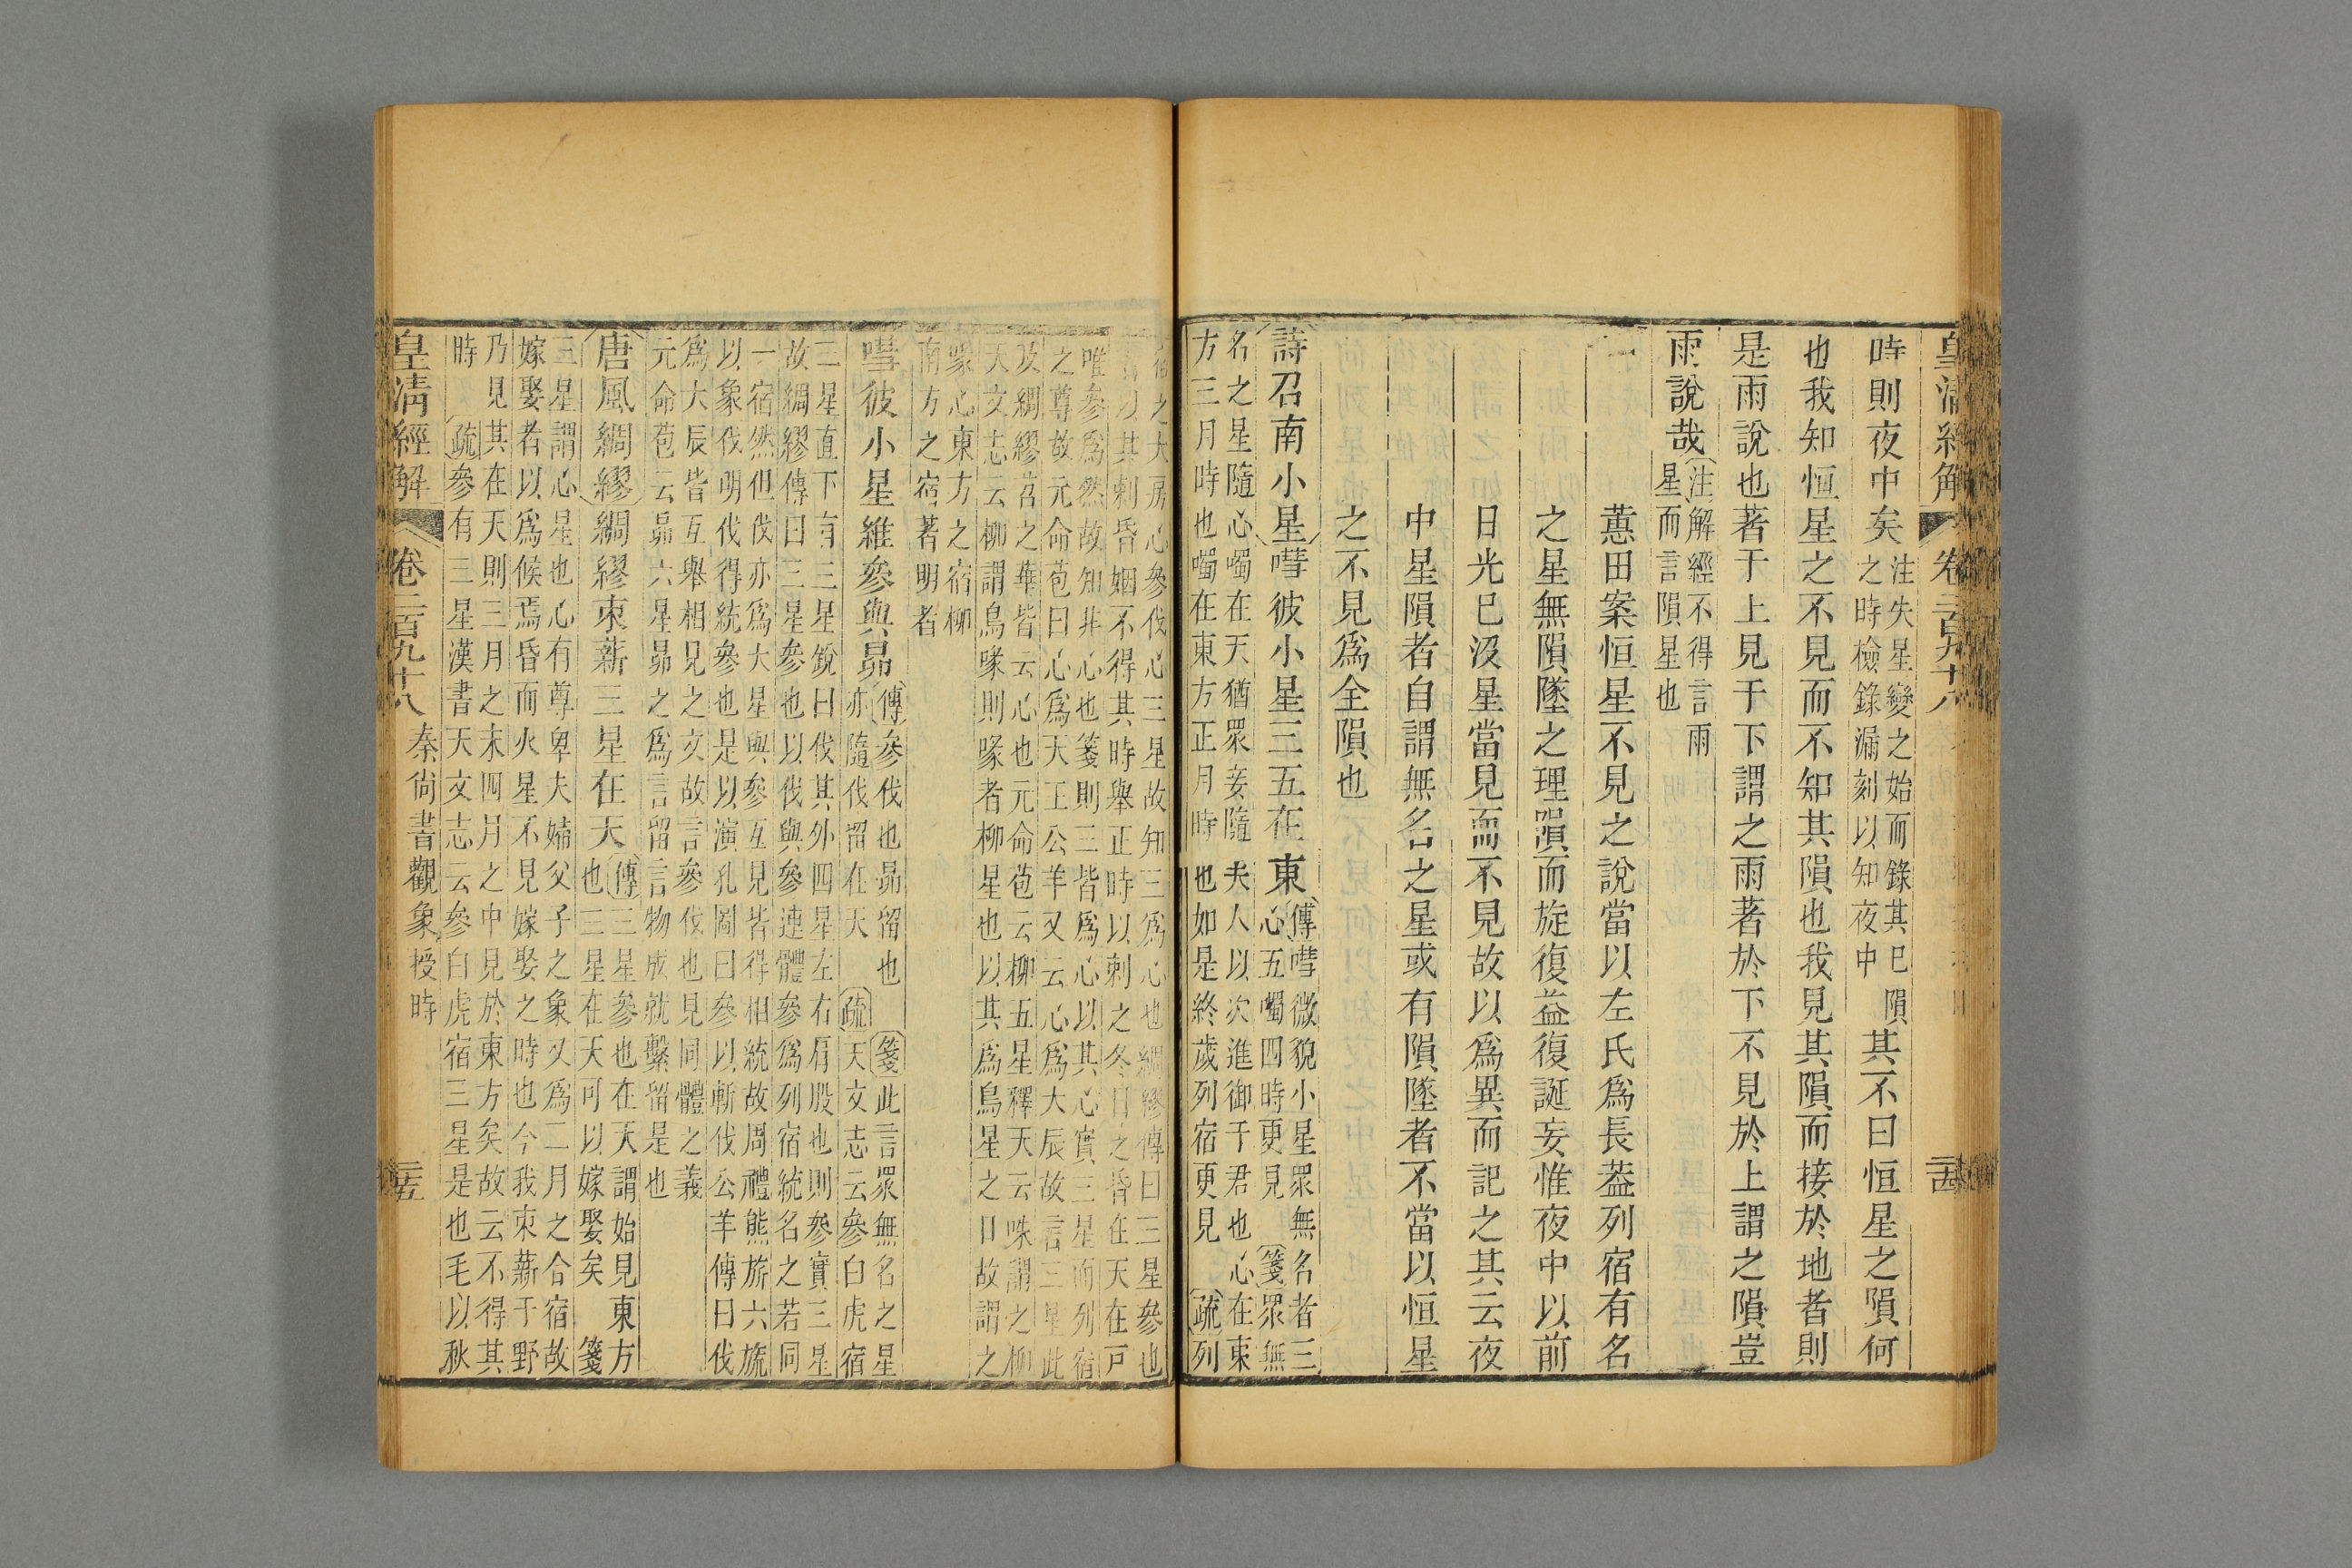 皇清經解 卷二百九十八
時則夜中矣注失星變之始而錄其已隕
之時檢錄漏刻以知夜中其不曰恒星之隕何
也我知恒星之不見而不知其隕也我見其隕而接於地者則
是雨說也著于上見于下謂之雨著於下不見於上謂之隕豈
雨說哉注解經不得言雨
星而言隕星也
蕙田案恒星不見之說當以左氏爲長葢列宿有名
之星無隕墜之理隕而旋復益復誕妄惟夜中以前
日光已沒星當見而不見故以爲異而記之其云夜
中星隕者自謂無名之星或有隕墜者不當以恒星
之不見爲全隕也
詩召南小星嘒彼小星三五在東傳嘒微貌小星眾無名者三
心五噣四時更見箋眾無
名之星隨心噣在天猶眾妾隨夫人以次進御于君也心在東
方三月時也噣在東方正月時也如是終歲列宿更見疏列
宿之大房心參伐心三星故知三爲心也綢繆傳曰三星參也
以其刺昏姻不得其時舉正時以刺之冬日之昏在天在戸
唯參爲然故知非心也箋則三皆爲心以其心實三星而列宿
之尊故元命苞曰心爲天王公羊又云心爲大辰故言三星此
及綢繆苕之華皆云心也元命苞云柳五星釋天云咮謂之柳
天文志云柳謂鳥喙則喙者柳星也以其爲鳥星之口故謂之
喙心東方之宿柳
南方之宿著明者
嘒彼小星維參與昴傳參伐也昴留也箋此言眾無名之星
亦隨伐留在天疏天文志云參白虎宿
三星直下有三星銳曰伐其外四星左右肩股也則參實三星
故綢繆傳曰三星參也以伐與參連體參爲列宿統名之若同
一宿然但伐亦爲大星與參互見皆得相統故周禮熊旂六旒
以象伐明伐得統參也是以演孔圖曰參以斬伐公羊傳曰伐
爲大辰皆互舉相見之文故言參伐也見同體之義
元命苞云昴六星昴之爲言留言物成就繫留是也
唐風綢繆綢繆束薪三星在天傳三星參也在天謂始見東方
也三星在天可以嫁娶矣箋
三星謂心星也心有尊卑夫婦父子之象又爲二月之合宿故
嫁娶者以爲候焉昏而火星不見嫁娶之時也今我束薪于野
乃見其在天則三月之末四月之中見於東方矣故云不得其
時疏參有三星漢書天文志云參白虎宿三星是也毛以秋
皇清經解 卷二百九十八 秦尚書觀象授時 三五